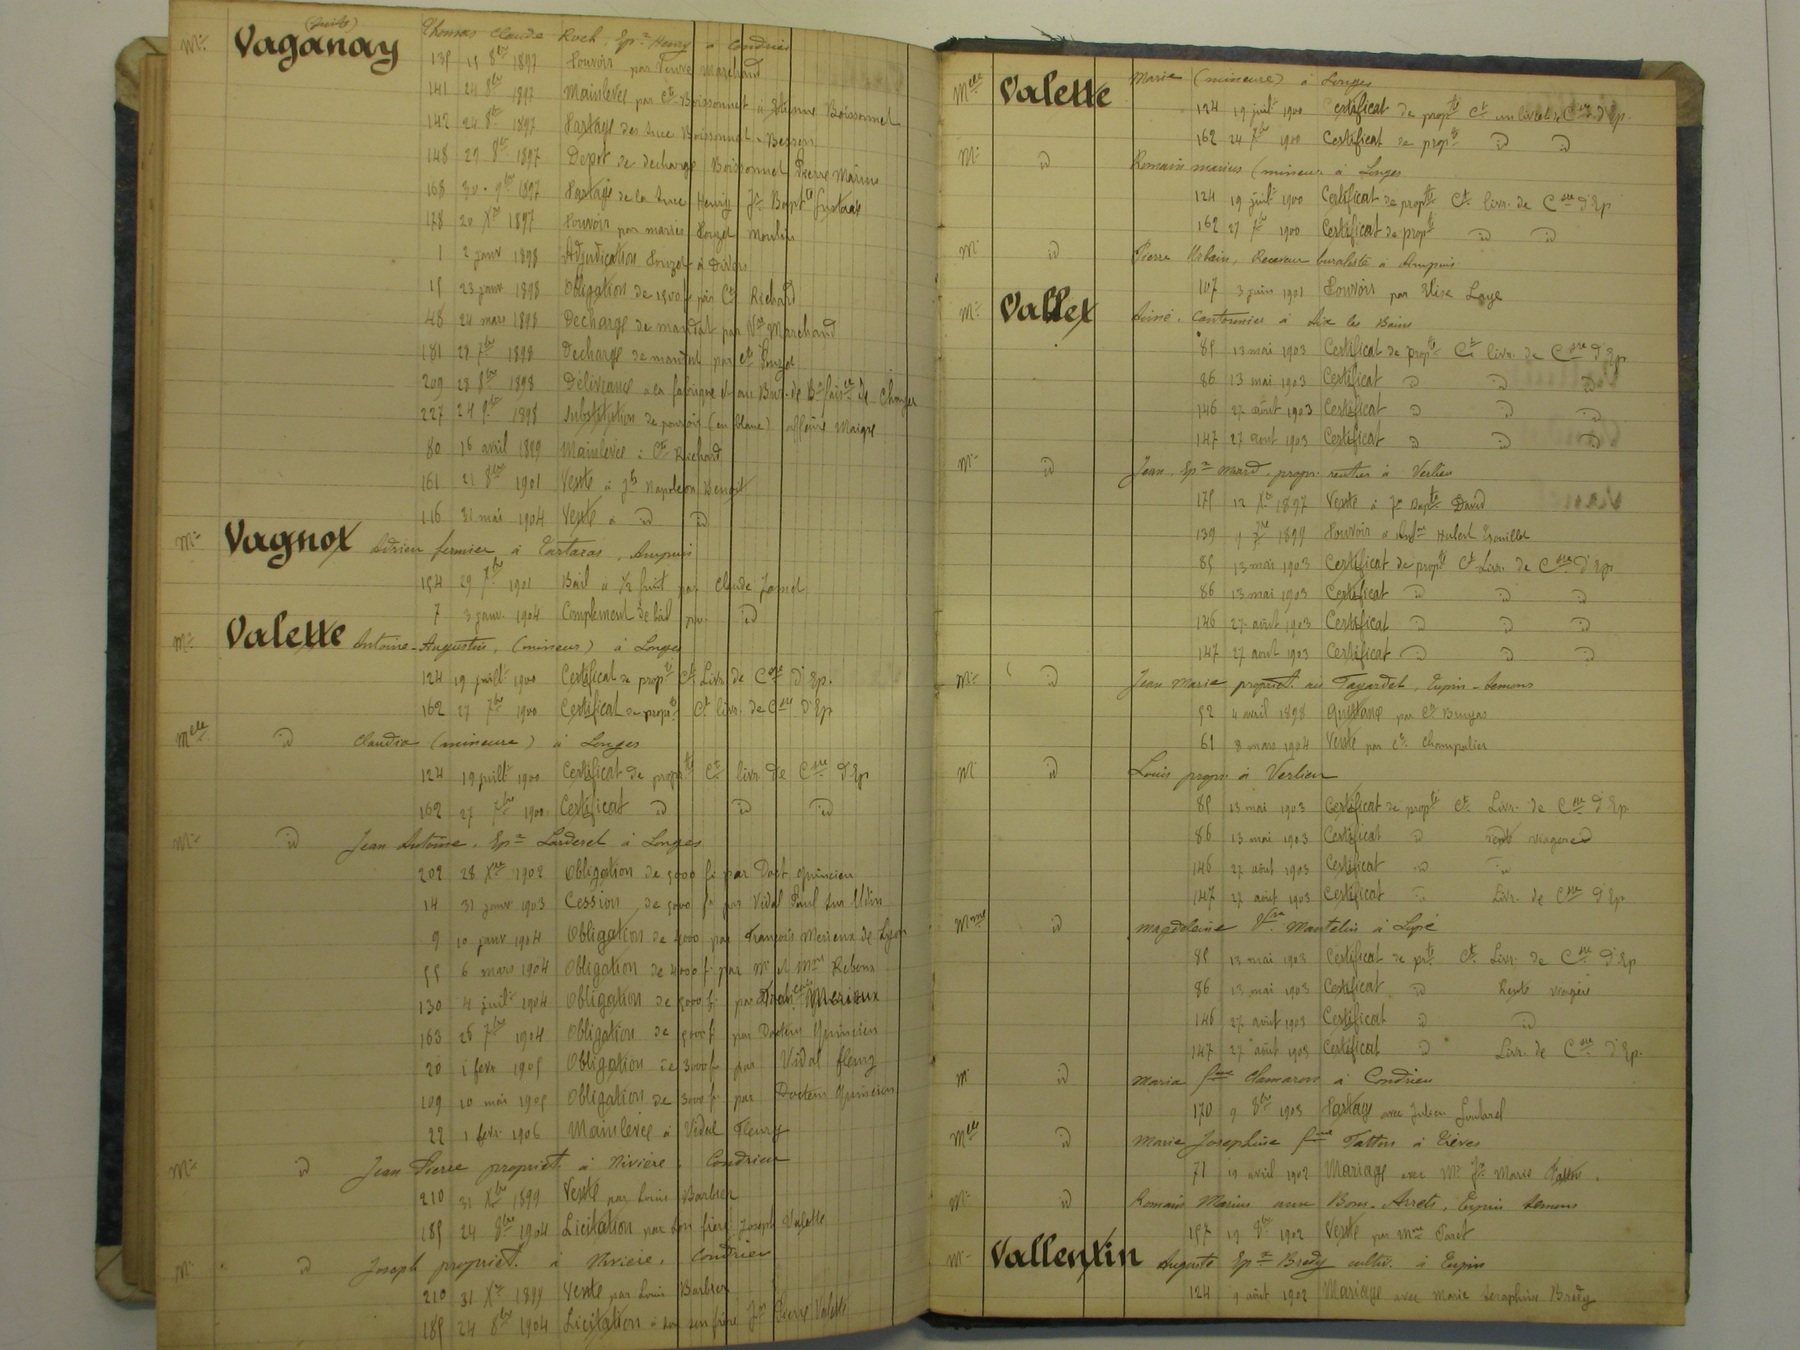 (suite)
Mr Vaganay Thomas Claude Roch, Epx Henry à Condrieu
135 15 8bre 1897 Pouvoir par Veuve Marchand
141 24 8bre 1897 Mainlevée par Ct Boissonnet à Etienne Boissonnet
142 24 8bre 1897 Partage des succ Boissonnet - Besson
148 29 8bre 1897 Dépot de décharge Boissonnet Pierre Marius
168 30 9bre 1897 Partage de la succ Henry Jn Bapte Gustave
178 20 Xbre 1897 Pouvoir par mariés Pouzol Moulin
1 2 janv 1898 Adjudication Pouzol à Divers
15 23 janv 1898 Obligation de 1500 f par Ct Richard
48 24 mars 1898 Décharge de mandat par Vve Marchand
181 28 7bre 1898 Décharge de mandat par Ct Pouzol
209 28 8bre 1898 Délivrance à la fabrique et au Bur. de Bienfaisce de
227 24 9bre 1898 Substitution de pouvoir (en blanc) Maigre
80 16 avril 1899 Mainlevée : Ct Richard
161 21 8bre 1901 Vente à Jh Napoléon Benoit
116 31 mai 1904 Vente à id id
Mr Vagnot Adrien fermier à Tartaras, Ampuis
154 29 7bre 1901 Bail à 1/2 fruit par Claude Jamet
7 3 janv. 1904 Complément de bail par id
Mr Valette Antoine-Augustin, (mineur) à Longes
124 19 juillt 1900 Certificat de propté Ct Livr. de Csse d'Ep.
162 27 7bre 1900 Certificat de propté Ct livr. de Csse d'Ep
Melle id Claudia (mineure) à Longes
124 19 juillt 1900 Certificat de propté Ct livr. de Csse d'Ep
162 27 7bre 1900 Certificat id id id
Mr id Jean Antoine, Epx Larderet à Longes
202 28 Xbre 1902 Obligation de 5000 f. par Doct Quincieu
14 31 janv 1903 Cession de 5000 fr par Vidal Paul
9 10 janv 1904 Obligation de 4000 par François Merieux de Lyon
55 6 mars 1904 Obligation de 4000 f. par Mr et Mme Reboux
130 4 juilt 1904 Obligation de 5000 f. par Merieux
163 26 7bre 1904 Obligation de 5000 f par Docteur Quincieu
20 1 fevr 1905 Obligation de 3000 f par Vidal Fleury
109 10 mai 1905 Obligation de 3000 f. par Docteur Quincieu
22 1 fevr. 1906 Mainlevée à Vidal Fleury
Mr id Jean Pierre propriet. à Rivière, Condrieu
210 31 Xbre 1899 Vente par Louis Barbier
185 24 8bre 1904 Licitation par son frère Joseph Valette
Mr id Joseph propriet. à Rivière, Condrieu
210 31 Xbre 1899 Vente par Louis Barbier
185 24 8bre 1904 Licitation à son frère Jn Pierre Valette
Melle Valette Marie (mineure) à Longes
124 19 juilt 1900 Certificat de propté Ct un livret de Csse d'Ep.
162 24 7bre 1900 Certificat de propté id id
Mr id Romain Marius (mineur à Longes
124 19 juilt 1900 Certificat de propté Ct livr. de Csse d'Ep
162 27 7bre 1900 Certificat de propté id id
Mr id Pierre Urbain, Receveur buraliste à Ampuis
107 3 juin 1901 Pouvoir par Elise Loye
Mr Vallet Aimé, Cantonnier à Aix les Bains
85 13 mai 1903 Certificat de propté Ct livr. de Csse d'Ep
86 13 mai 1903 Certificat id id id
146 27 août 1903 Certificat id id id
147 27 août 1903 Certificat id id id
Mr id Jean, Epx Mard, propr. rentier à Verlieu
175 12 Xbre 1897 Vente à Jn Bapte David
139 9 7bre 1899 Pouvoir à Hubert Trouillet
85 13 mai 1903 Certificat de propté Ct Livr. de Csse d'Ep
86 13 mai 1903 Certificat id id id
146 27 août 1903 Certificat id id id
147 27 août 1903 Certificat id id id
Mr id Jean Marie propriet. au Tayardet, Tupin-Semons
52 4 avril 1898 Quittance par Ct Bruyas
61 8 mars 1904 Vente par Ct Champalier
Mr id Louis propr. à Verlieu
85 13 mai 1903 Certificat de propté Ct Livr. de Csse d'Ep
86 13 mai 1903 Certificat id rente viagère
146 27 août 1903 Certificat id id
147 27 août 1903 Certificat id Livr. de Csse d'Ep
Mme id Magdeleine Vve Mantelin à Lupé
85 13 mai 1903 Certificat de prté Ct Livr. de Csse d'Ep
86 13 mai 1903 Certificat id Rente viagère
146 27 août 1903 Certificat id id
147 27 août 1903 Certificat id Livr. de Csse d'Ep.
M id Maria fme Clamaron à Condrieu
170 9 8bre 1903 Partage avec Julien
Melle id Marie Josephine fme Patton à Trèves
71 19 avril 1902 Mariage avec Mr Jn Marie Patton.
Mr id Romain Marius aux Bons-Arrets, Tupin Semons
157 19 8bre 1902 Vente par Mme Paret
Mr Vallentin Auguste Epx Brédy cultiv. à Tupin
124 9 août 1902 Mariage avec Marie Seraphine Brédy